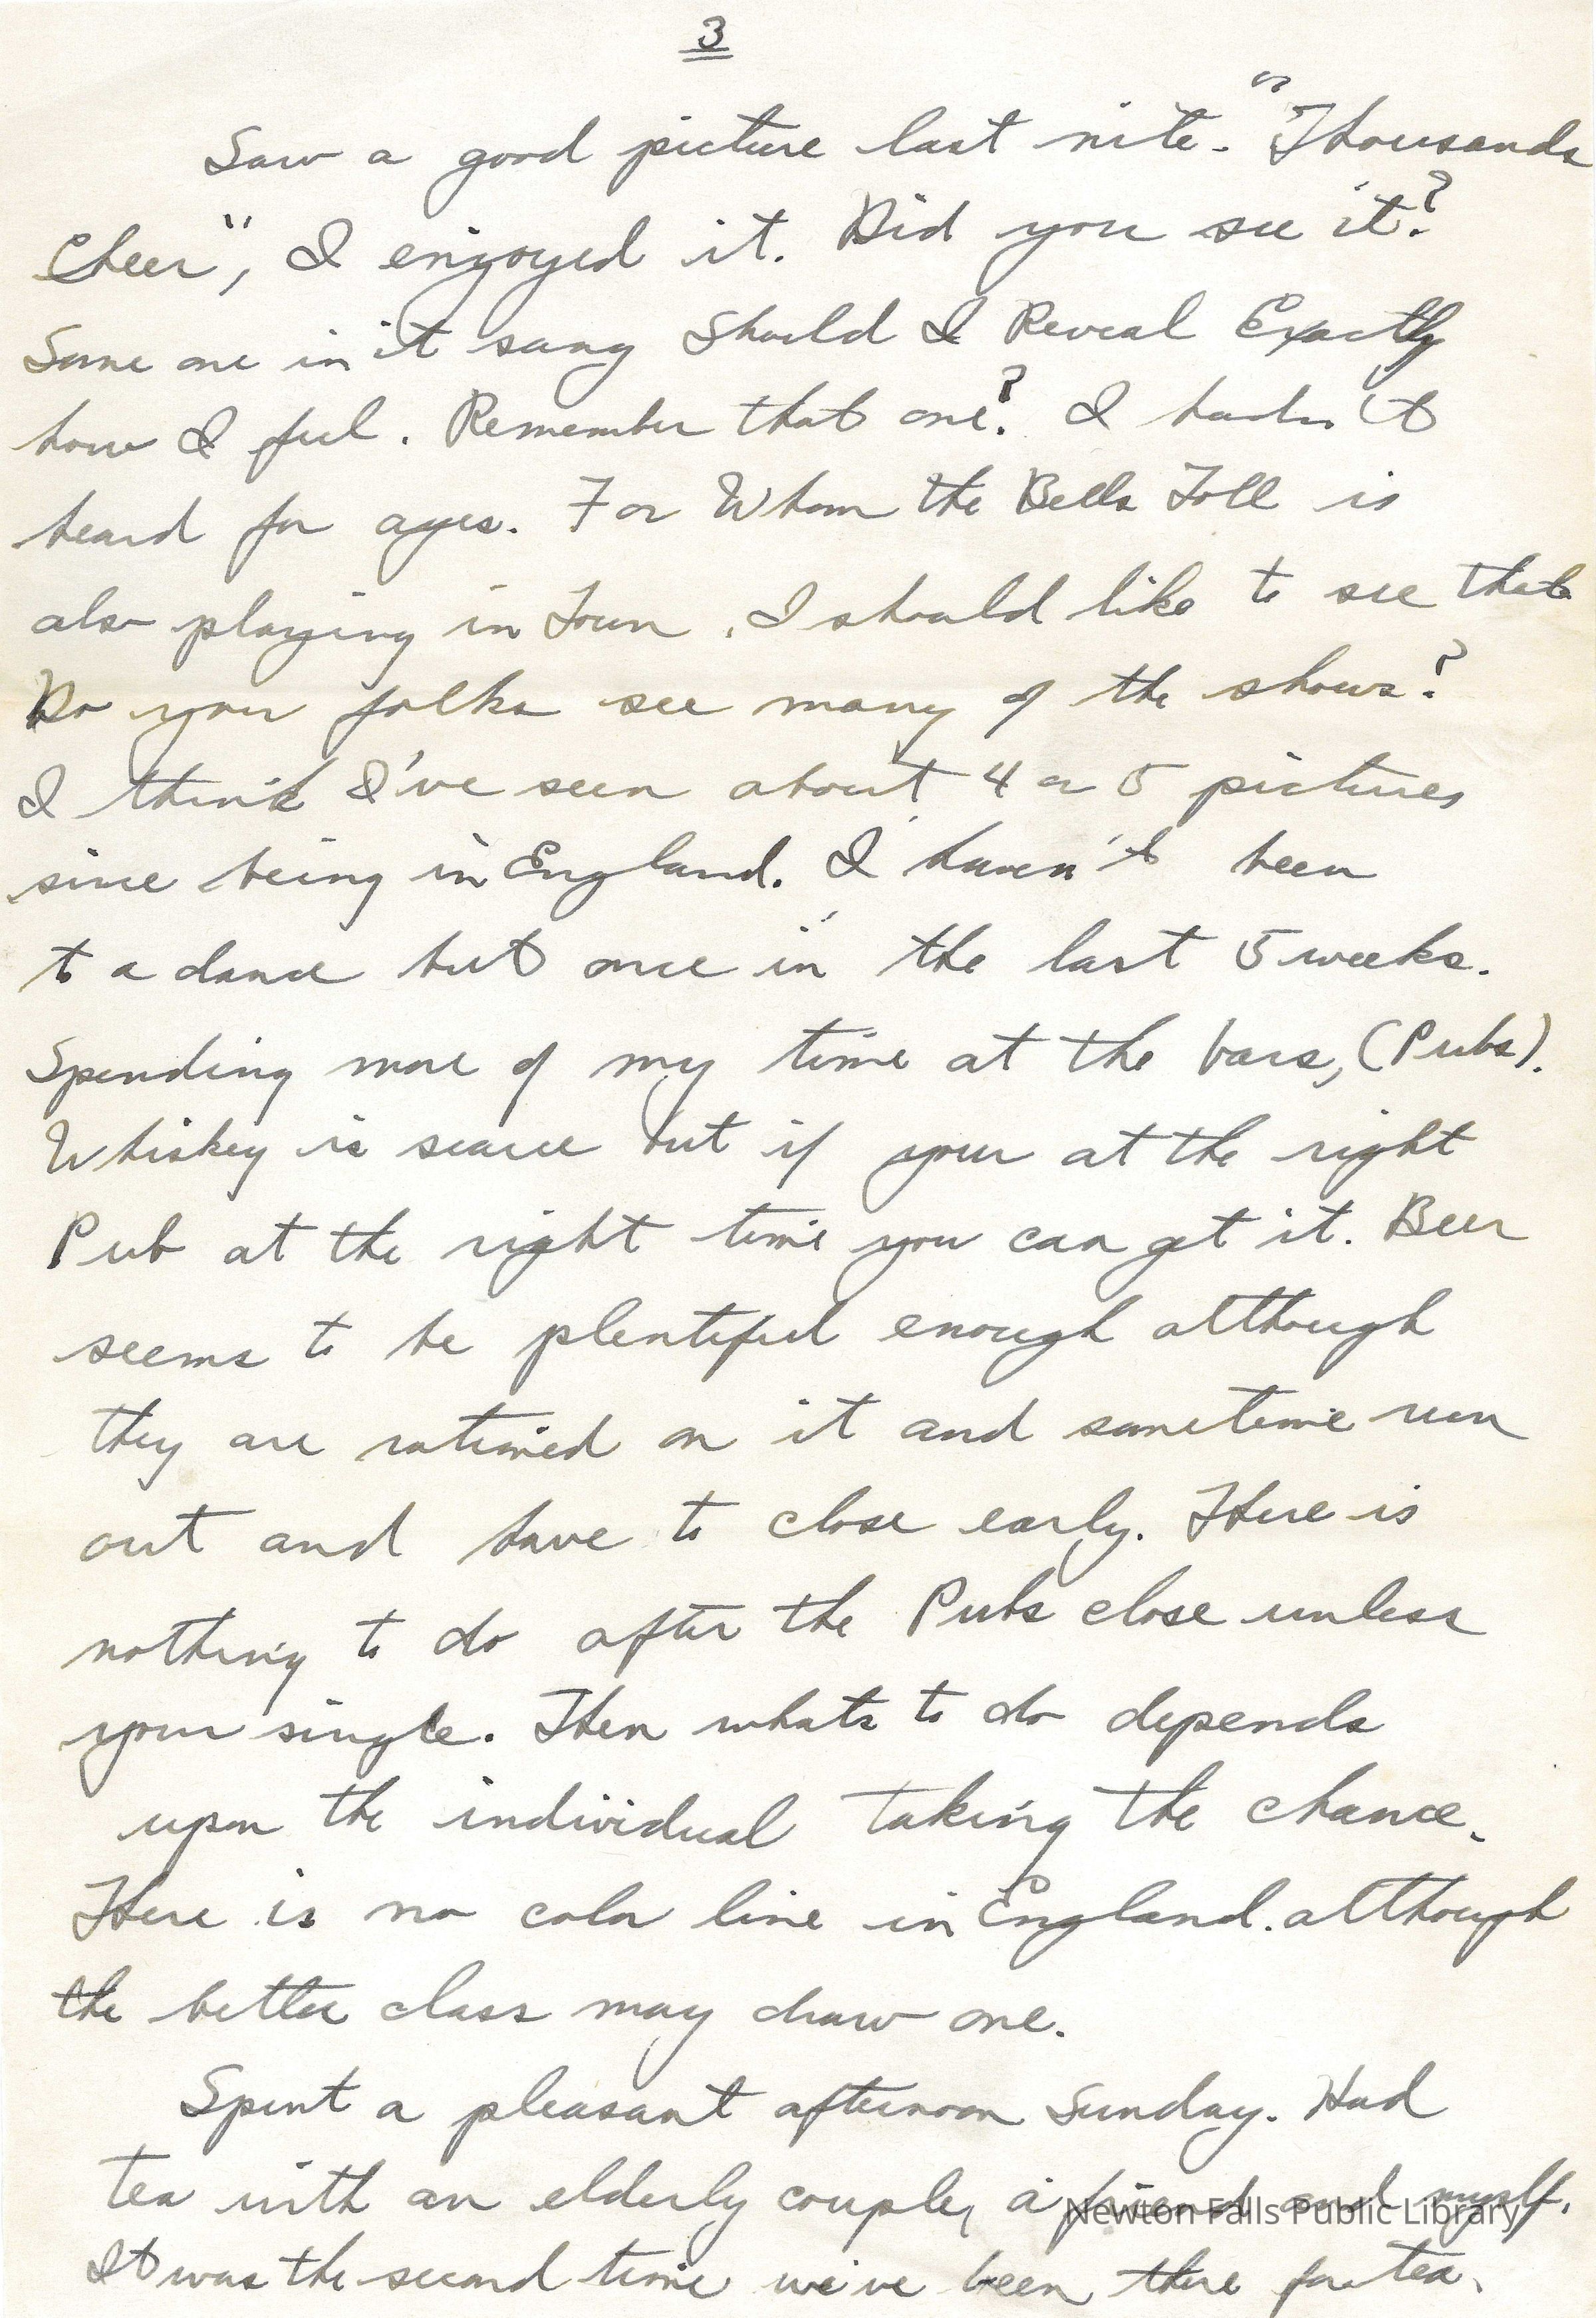 3
Saw a good picture last nite. "Thousands
Cheer", I enjoyed it. Did you see it?
Some one in it sang Should I Reveal Exactly
how I feel. Remember that one? I hadn't
heard for ages. For Whom the Bells Toll is
also playing in Town. I should like to see that
Do you folks see many of the shows?
I think I've seen about 4 or 5 pictures
since being in England. I haven't been
to a dance but once in the last 5 weeks.
Spending more of my time at the bars, (Pubs).
Whiskey is scarce but if your at the right
Pub at the right time you can get it. Beer
seems to be plentiful enough although
they are rationed on it and sometime run
out and have to close early. There is
nothing to do after the Pubs close unless
your single. Then whats to do depends
upon the individual taking the chance.
There is no color line in England. although
the better class may draw one.
Spent a pleasant afternoon Sunday. Had
tea with an elderly couple, a friend and myself.
It was the second time we've been there for tea.
Newton Falls Public Library